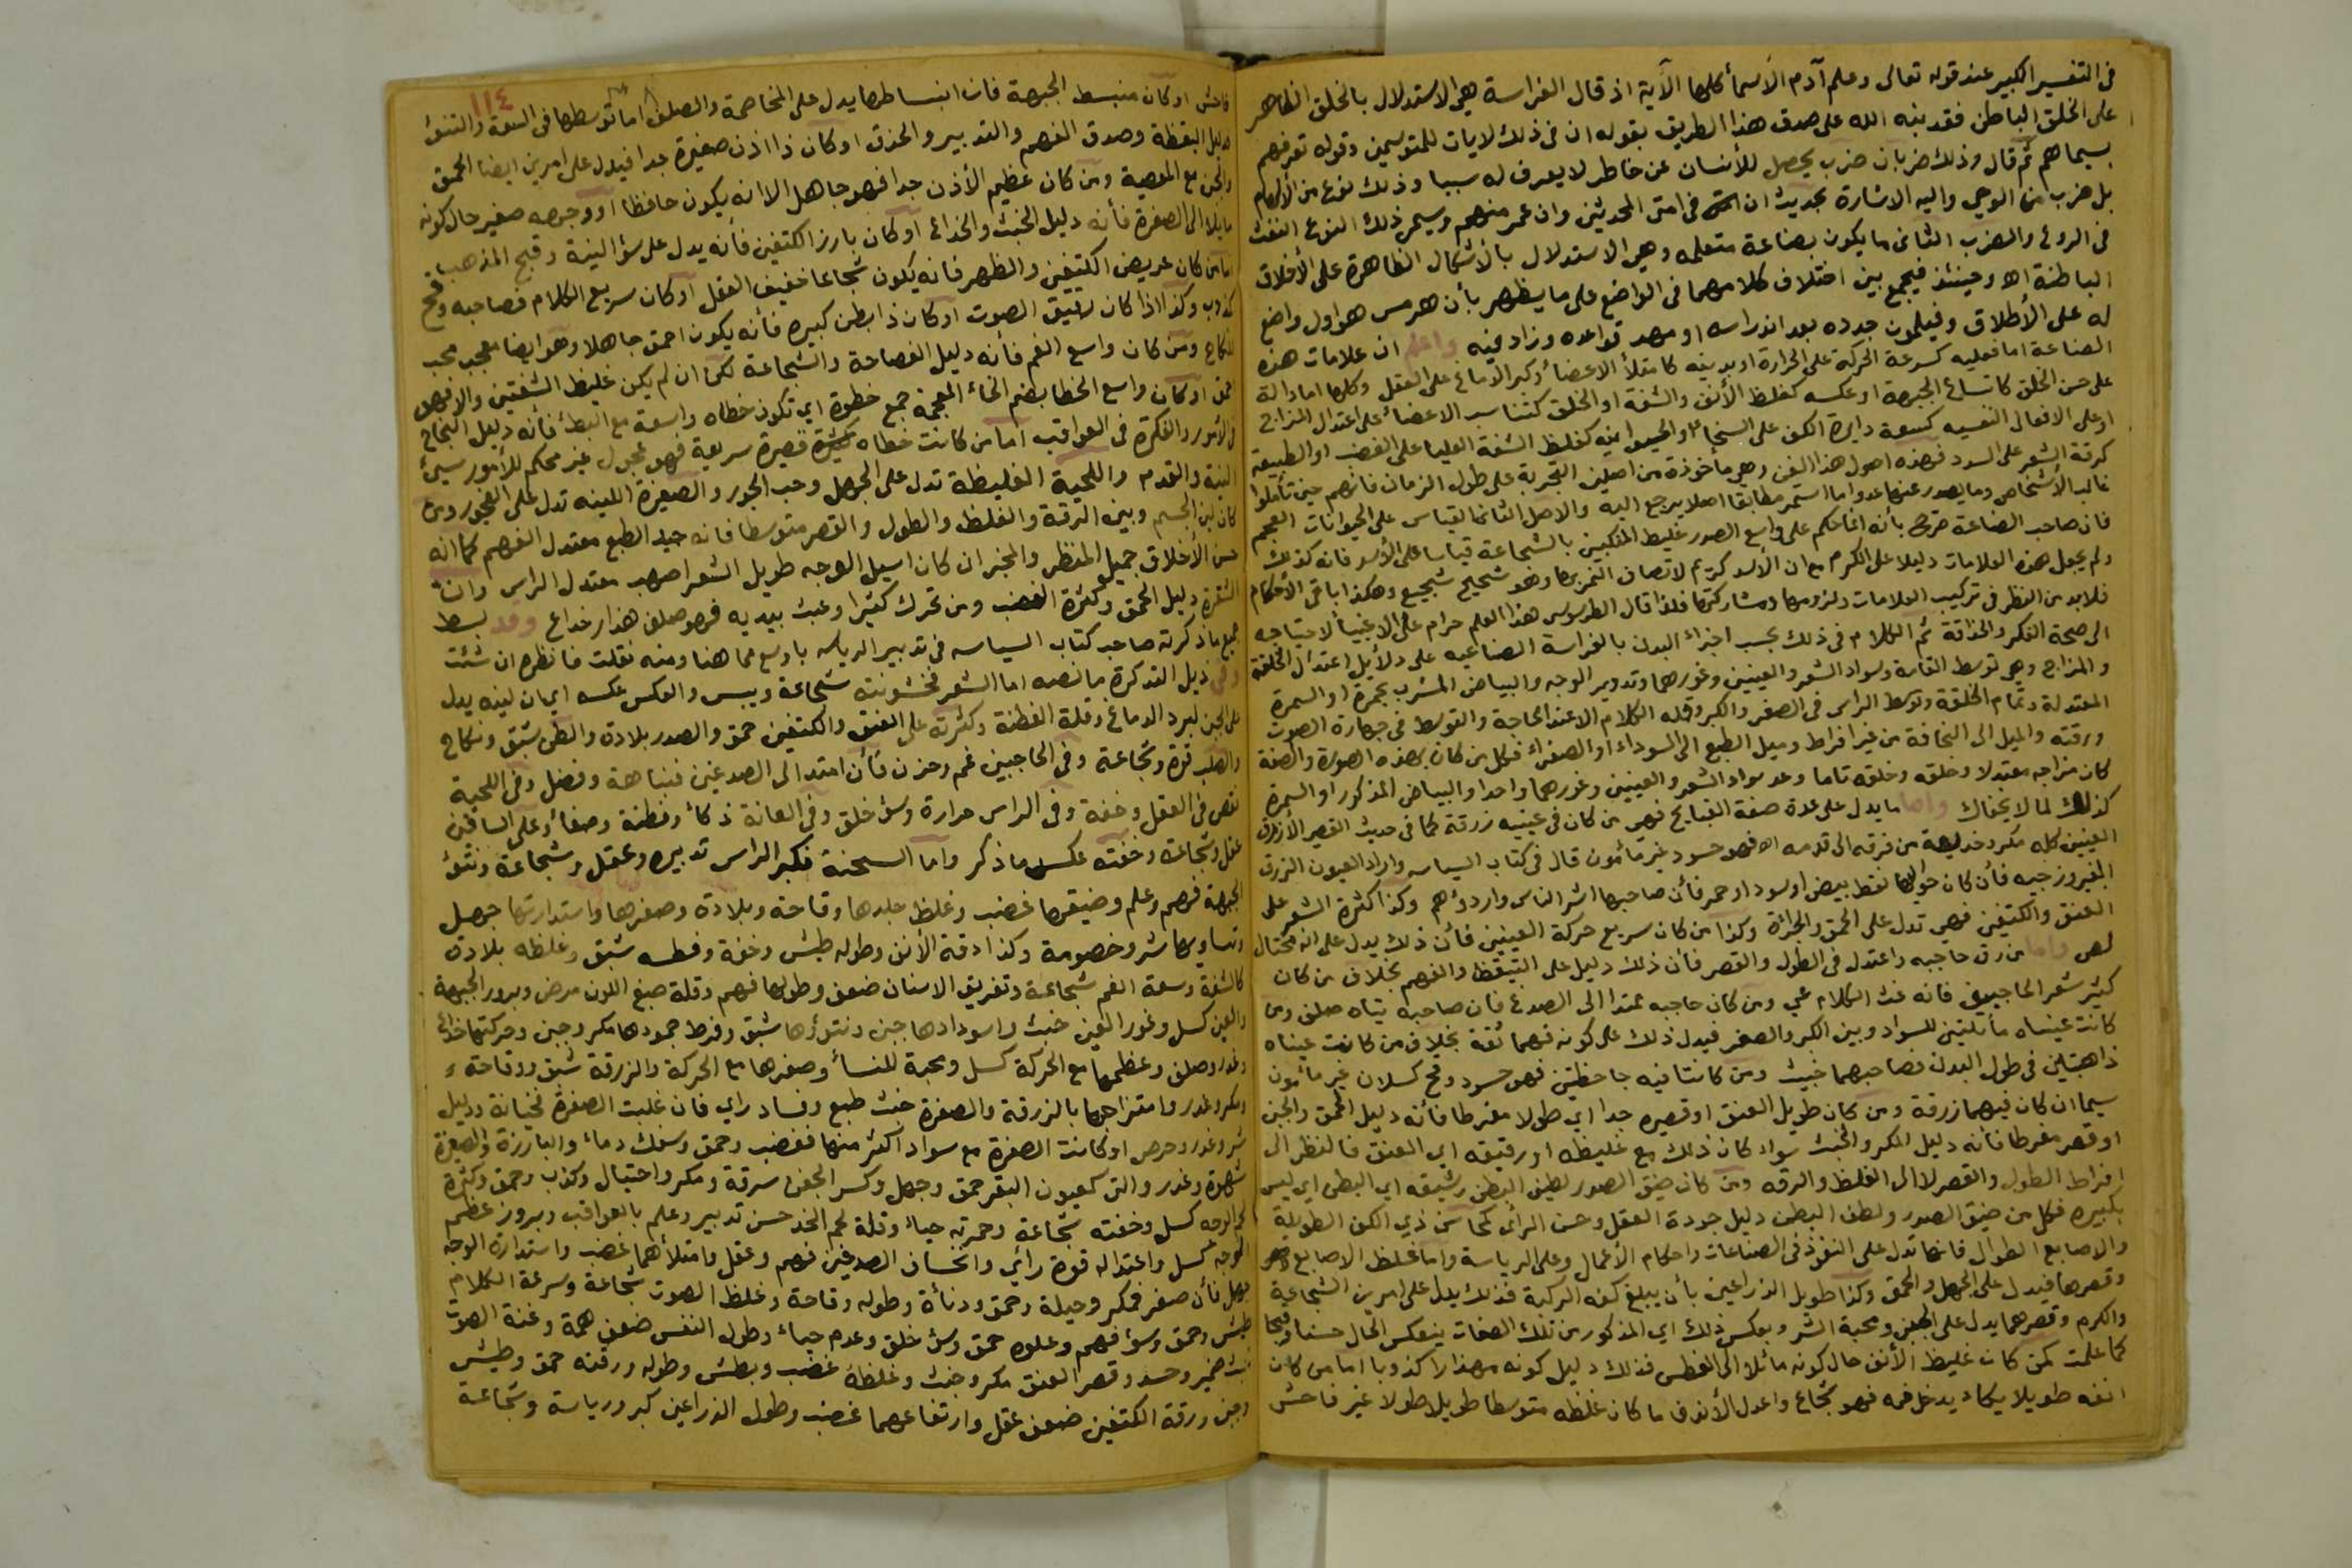 في التفسير الكبير عند قوله تعالى وعلم آدم الأسمأ كلها الآية اذ قال الفراسة هي الاستدلال بالخلق الظاهر
على الخلق الباطن فقد بينه الله على صدق هذا الطريق بقوله ان في ذلك لايات للمتوسمين وقوله تعرفهم
بسيماهم ثم قال وذلك ضربان ضرب يحصل للأنسان عن خاطر لا يعرف له سببا وذلك نوع من الألهام
بل ضرب من الوحي واليه الاشارة بحديث ان في امتي المحدثين وان عمر منهم ويسمى ذلك النوع النفث
في الروع والضرب الثاني ما يكون بصناعة متعلمه وهي الاستدلال بالأشكال الظاهرة على الأخلاق
الباطنة اه وحينئذ فيجمع بين اختلاف كلامهما في الواضع على ما يظهر بأن هرمس هو اول واضع
له على الأطلاق وفيلمون جدده بعد اندراسه او مهد قواعده وزاد فيه واعلم ان علامات هذه
الصناعة اما فعليه كسرعة الحركة على الحرارة او بدنيه كامتلأ الاعضأ وكبر الدماغ على العقل وكلها اما دالة
على حسن الخلق كاتساع الجبهة او عكسه كغلظ الأنف والشفة او الخلق كتناسب الاعضأ على اعتدال المزاج
او على الافعال النفسيه كسعة دايرة الكف على السخأ او الحيوانيه كغلظ الشفة العليا على الغضب او الطبيعة
كرقة الشعر على السدد فهذه اصول هذا الفن وهي مأخوذة من اصلين التجربة على طول الزمان فانهم حين تأملوا
غالب الأشخاص وما يصدر عنها عدوا ما استمر مطابقا اصلا يرجع اليه والاصل الثاني القياس على الحيوانات العجم
فان صاحب الصناعة صرح بأنه انما حكم على واسع الصدر غليظ المنكبين بالشجاعة قياسا على الأسد فانه كذلك
ولم يجعل هذه العلامات دليلا على الكرم مع ان الأسد كريم لاتصاف النمر بها وهو شحيح شجيع وهكذا باقي الأحكام
فلابد من النظر في تركيب العلامات ولزومها ومشاركتها فلذا قال الطرسوسي هذا العلم حرام على الاغبيأ لاحتياجه
الى صحة الفكر والحذاقة ثم الكلام في ذلك بحسب اجزاء البدن بالفراسة الصناعيه على دلأيل اعتدال الخلقة
والمزاج وهي توسط القامة وسواد الشعر والعينين وغورهما وتدوير الوجه والبياض المشرب بحمرة او السمرة
المعتدلة وتمام الخلقة وتوسط الراس في الصغر والكبر وقله الكلام الا عند الحاجة والتوسط في جهارة الصوت
ورقته والميل الى النحافة من غير افراط وميل الطبع الى السوداء او الصفرأ فكل من كان بهذه الصورة والصفة
كان مزاجه معتدلا وخلقه وخلقه تاما وعد سواد الشعر والعينين وغورهما واحدا والبياض المذكور او السمرة
كذلك لما لا يخفاك واما ما يدل على عدة صفة القبايح فهي من كان في عينيه زرقة كما في حديث القصير الأزرق
العينين كله مكر وخديعة من فرقه الى قدمه اه فهو حسود غير مأمون قال في كتاب السياسه واراد العيون الزرق
الفيروزجيه فأن كان حواليها نقط بيض او سود او حمر فأن صاحبها اشر الناس واردؤهم وكذا كثرة الشعر على
العنق والكتفين فهي تدل على الحمق والجرأة وكذا من كان سريع حركة العينين فأن ذلك يدل على انه محتال
لص واما من رق حاجبه واعتدل في الطول والقصر فأن ذلك دليل على التيقظ والفهم بخلاف من كان
كثير شعر الحاجبين فانه غث الكلام عيي ومن كان حاجبه ممتدا الى الصدغ فان صاحبه تياه صلف ومن
كانت عيناه مأئلتين للسواد وبين الكبر والصغر فيدل ذلك على كونه فهما ثقة بخلاف من كانت عيناه
ذاهبتين في طول البدن فصاحبهما خبيث ومن كانتا فيه جاحظتين فهو حسود وقح كسلان غير مأمون
سيما ان كان فيهما زرقة ومن كان طويل العنق او قصيره جدا اي طولا مفرطا فأنه دليل الحمق والجبن
او قصر مفرطا فأنه دليل المكر والخبث سواء كان ذلك مع غليظه او رقيقه اي العنق فالنظر الى
افراط الطول والقصر لا الى الغلظ والرقه ومن كان ضيق الصدر لطيف البطن رشيقه اي البطن اي ليس
بكبيره فكل من ضيق الصدر ولطف البطن دليل جودة العقل وحسن الرأى كحاسن ذي الكف الطويلة
والاصابع الطوال فانها تدل على النفوذ في الصناعات واحكام الأعمال وعلى الرياسة واما غلظ الاصابع
وقصرها فيدل على الجهل والحمق وكذا طويل الذراعين بأن يبلغ كفه الركبة فذلك يدل على امرين الشجاعة
والكرم وقصرهما يدل على الجبن ومحبة الشر وبعكس ذلك اي المذكور من تلك الصفات ينعكس الحال حسنا وقبحا
كما علمت كمن كان غليظ الأنف حال كونه مائلا الى الفطس فذلك دليل كونه مهذارا كذوبا اما من كان
انفه طويلا يكاد يدخل فمه فهو شجاع واعدل الأنوف ما كان غلظه متوسطا طويلا طولا غير فاحش
١١٤
فاحش او كان منبسط الجبهة فان انبساطها يدل على المخاصمة والصلف اما توسطها في السعة والنتوئ
فدليل اليقظة وصدق الفهم والتدبير والحذق او كان ذا اذن صغيرة جدا فيدل على امرين ايضا الحمق
والجبن مع المعصية ومن كان عظيم الأذن جدا فهو جاهل الا انه يكون حافظا او وجهه صغير حال كونه
مايلا الى الصفرة فأنه دليل الخبث والخداع او كان بارز الكتفين فأنه يدل على سؤ النية وقبح المذهب
امامن كان عريض الكتفين والظهر فانه يكون شجاعا خفيف العقل او كان سريع الكلام فصاحبه وقح
كذوب وكذا اذا كان رقيق الصوت او كان ذا بطن كبيره فأنه يكون احمق جاهلا وهو ايضا معجب محب
للنكاح ومن كان واسع الفم فأنه دليل الفصاحة والشجاعة لكن ان لم يكن غليظ الشفتين والا فهو
حمق او كان واسع الخطا بضم الخأ المعجمة جمع خطوة اي تكون خطاه واسعة مع البطئ فأنه دليل النجاح
في الأمور والفكرة في العواقب اما من كانت خطاه قصيرة سريعة فهو عجول غير محكم للأمور سيئ
النية والقدم واللحية الغليظة تدل على الجهل وحب الجور والصغيرة اللينه تدل على الفجور ومن
كان لين الجسم وبين الرقة والغلظ والطول والقصر متوسطا فانه جيد الطبع معتدل الفهم كما انه
حسن الأخلاق جميل المنظر والمخبر ان كان اسيل الوجه طويل الشعر اصهب معتدل الراس وان
الشقرة دليل الحمق وكثرة الغضب ومن تحرك كثيرا وعبث بيديه فهو صلف هذار خداع وقد بسط
جميع ماذكرته صاحب كتاب السياسه في تدبير الرياسه باوسع مما هنا ومنه نقلت فانظره ان شئت
وفي ذيل التذكرة مانصه اما الشعر فخشونته شجاعة ويبس والعكس عكسه اي ان لينه يدل
على الجبن لبرد الدماغ وقلة الفطنة وكثرته على العنق والكتفين حمق والصدر بلادة والبطن شبق ونكاح
والصلب قوة وشجاعة وفي الحاجبين غم وحزن فأن امتد الى الصدغين فنباهة وفضل وفي اللحية
نقص في العقل وخفة وفي الراس حرارة وسؤ خلق وفي العانة ذكأ وفطنة وصفأ وعلى الساقين
عقل وشجاعة وخفته عكس ماذكر واما السحنة فكبر الراس تدبير وعقل وشجاعة ونتؤ
الجبهة فهم وعلم وضيقها غضب وغلظ جلدها وقاحة وبلادة وصغرها واستدارتها جهل
وتساويها شر وخصومة وكذا دقة الأنف وطوله طيش وخفة وفطسه شبق وغلظه بلادة
كالشفة وسعة الفم شجاعة وتفريق الاسنان ضعف وطولها فهم وقلة صبغ اللون مرض وبرور الجبهة
والعين كسل وغور العين خبث واسودادها جبن ونتوؤها شبق وفرط جمودها مكر وجبن وحركتها خداع
وغدر وصلف وعظمها مع الحركة كسل ومحبة للنسأ وصغرها مع الحركة والزرقة شبق ووقاحة
ومكر وغدر وامتزاجها بالزرقة والصفرة خبث طبع وفساد راي فان غلبت الصفرة فخيانة ودليل
شر وغدر وحرص او كانت الصفرة مع سواد اكثر منها فغضب وحمق وسفك دماء والبارزة والصغيرة
شهوة وغدر والتي كعيون البقر حمق وجهل وكسر الجفن سرقة ومكر واحتيال وكذب وحمق وكثرة
لحم الوجه كسل وخفته شجاعة وحمرته حياء وقلة لحم الخد حسن تدبير وعلم بالعواقب وبروز عظم
الوجه كسل واعتداله قوة رأي وانخساف الصدغين فهم وعقل وامتلأهما غضب واستدارة الوجه
جهل فأن صغر فمكر وحيلة وحمق ودنأة وطوله وقاحة وغلظ الصوت شجاعة وسرعة الكلام
طيش وحمق وسؤ فهم وعلوه حمق وسؤ خلق وعدم حياء وطول النفس ضعف همة وغنة الصوت
خبث ضمير وحسد وقصر العنق مكر وخبث وغلظه غضب وبطش وطوله ورقته حمق وطيش
وجبن ورقة الكتفين ضعف عقل وارتفاعهما غضب وطول الذراعين كبر ورياسة وشجاعة